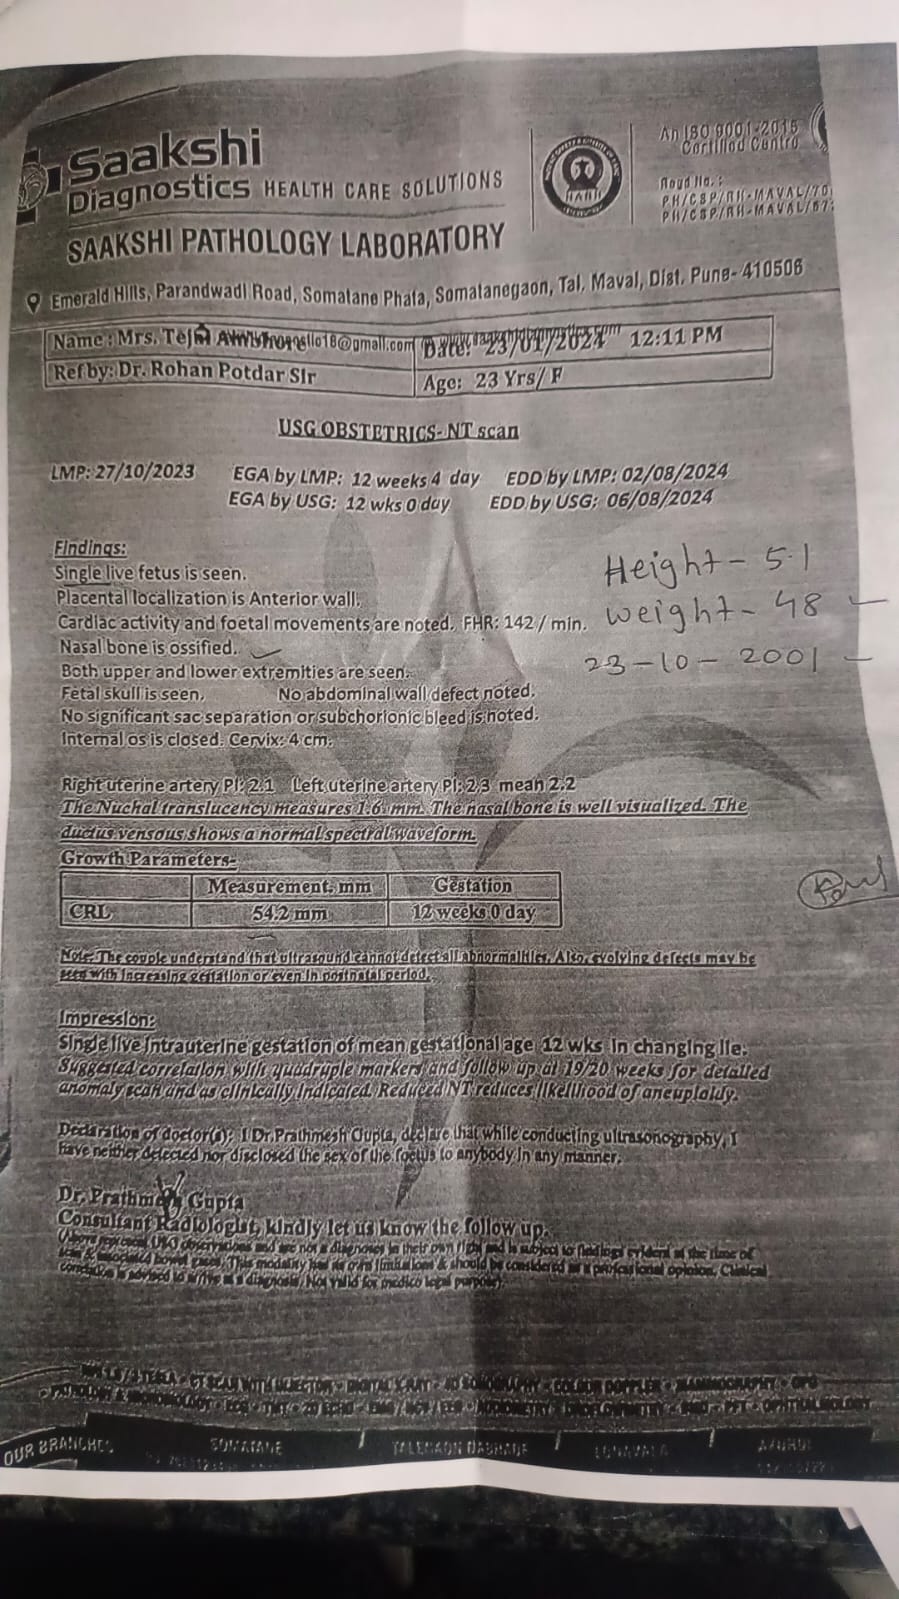 Saakshi
Diagnostics HEALTH CARE SOLUTIONS
An ISO 9001:2015
Certified Centre
Regd No. :
PH/CSP/RH-MAVAL/70
PH/CSP/RH-MAVAL/67
SAAKSHI PATHOLOGY LABORATORY
Emerald Hills, Parandwadi Road, Somatane Phata, Somatanegaon, Tal. Maval, Dist. Pune- 410506
Name : Mrs. Date: 23/01/2024 12:11 PM
Ref by: Dr. Rohan Potdar Sir Age: 23 Yrs/ F
USG OBSTETRICS- NT scan
LMP: 27/10/2023 EGA by LMP: 12 weeks 4 day EDD by LMP: 02/08/2024
EGA by USG: 12 wks 0 day EDD by USG: 06/08/2024
Findings:
Single live fetus is seen.
Height - 5.1
Placental localization is Anterior wall.
Cardiac activity and foetal movements are noted. FHR: 142 / min.
weight - 48 –
Nasal bone is ossified.
23-10-2001 –
Both upper and lower extremities are seen.
Fetal skull is seen. No abdominal wall defect noted.
No significant sac separation or subchorionic bleed is noted.
Internal os is closed. Cervix: 4 cm.
Right uterine artery PI: 2.1 Left uterine artery PI: 2.3 mean 2.2
The Nuchal translucency measures 1.6 mm. The nasal bone is well visualized. The
ductus vensous shows a normal spectral waveform.
Growth Parameters-
Measurement. mm Gestation
CRL 54.2 mm 12 weeks 0 day
Note: The couple understand that ultrasound cannot detect all abnormalities. Also, evolving defects may be
seen with increasing gestation or even in postnatal period.
Impression:
Single live intrauterine gestation of mean gestational age 12 wks in changing lie.
Suggested correlation with quadruple markers and follow up at 19/20 weeks for detailed
anomaly scan and as clinically indicated. Reduced NT reduces likelihood of aneuploidy.
Declaration of doctor(s): I Dr.Prathmesh Gupta, declare that while conducting ultrasonography, I
have neither detected nor disclosed the sex of the foetus to anybody in any manner.
Dr. Prathmesh Gupta
Consultant Radiologist, kindly let us know the follow up.
OUR BRANCHES SOMATANE TALEGAON DABHADE LONAVALA